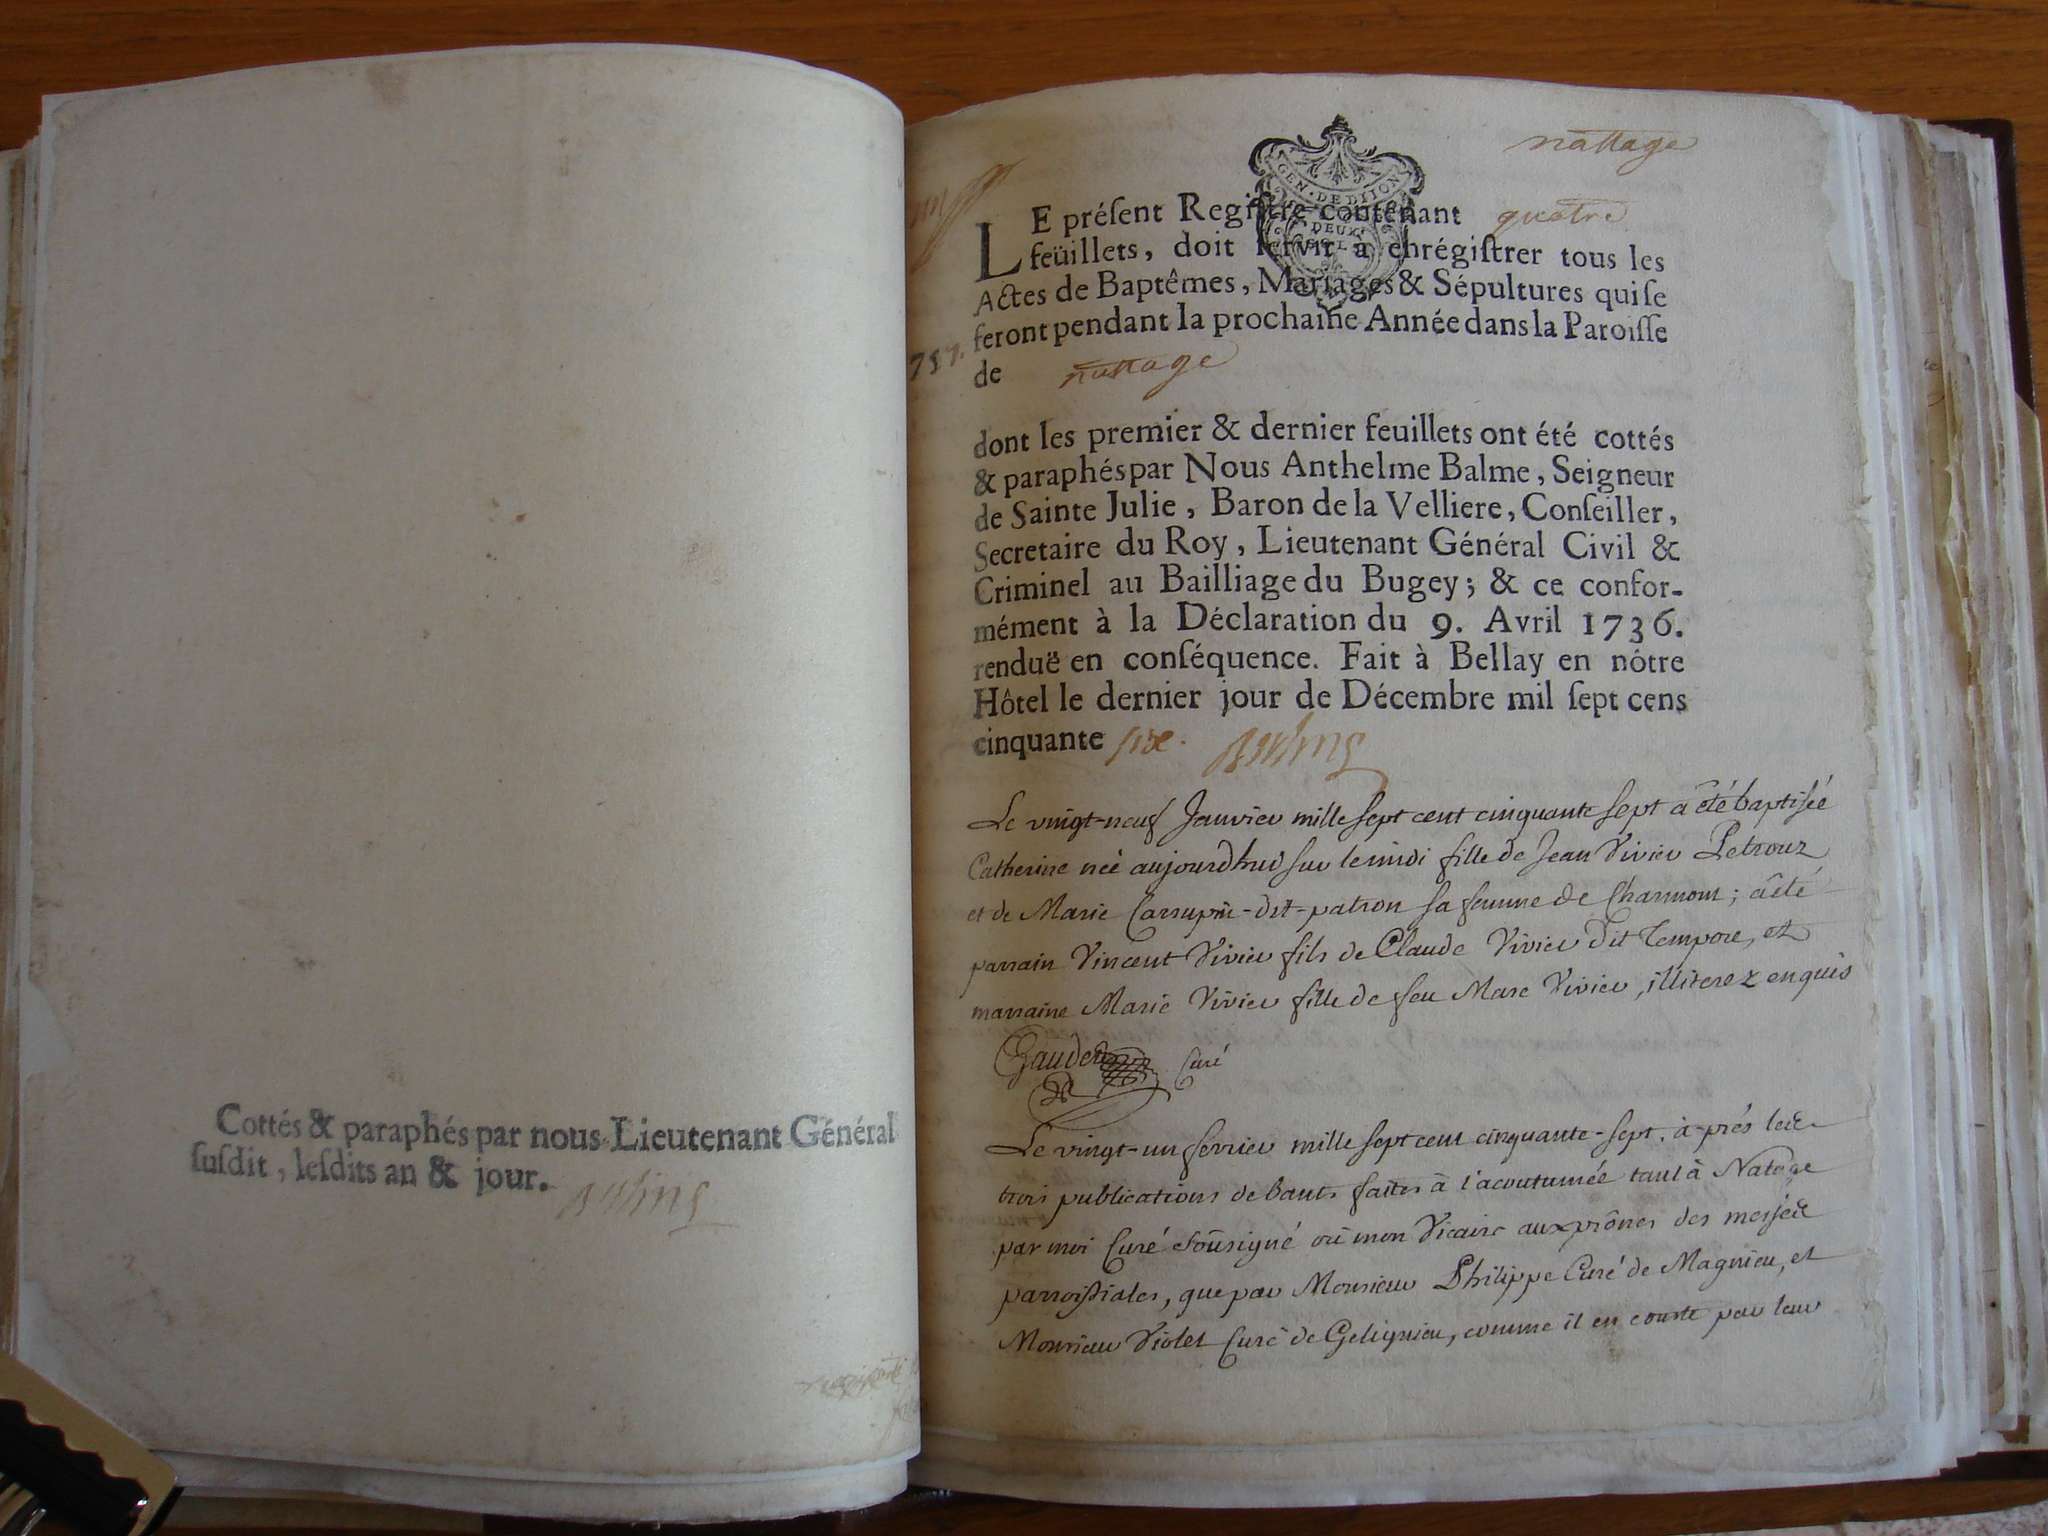 Cottés & paraphés par nous Lieutenant Général
ſuſdit, leſdits an & jour.
nattage
GEN. DE DIJON
DEUX
SOLS
LE préſent Regiſtre contenant quatre
feüillets, doit ſervir à enrégiſtrer tous les
Actes de Baptêmes, Mariages & Sépultures qui ſe
feront pendant la prochaine Année dans la Paroiſſe
757.
de nattage
dont les premier & dernier feuillets ont été cottés
& paraphés par Nous Anthelme Balme, Seigneur
de Sainte Julie, Baron de la Velliere, Conſeiller,
Secretaire du Roy, Lieutenant Général Civil &
Criminel au Bailliage du Bugey; & ce confor-
mément à la Déclaration du 9. Avril 1736.
renduë en conſéquence. Fait à Bellay en nôtre
Hôtel le dernier jour de Décembre mil ſept cens
cinquante six.
Le vingt-neuf Janvier mille sept cent cinquante sept a été baptisée
Catherine née aujourdhui sur le midi fille de Jean Vivier Petrouz
et de Marie -dit-patron sa femme de Charmont; a été
parrain Vincent Vivier fils de Claude Vivier dit Tempore, et
marraine Marie Vivier fille de feu Marc Vivier, illiterez enquis
Gaudet Curé
Le vingt-un fevrier mille sept cent cinquante-sept, a-prés les
trois publications de bans faites à l'acoutumée tant à Natage
par moi Curé soussigné où mon Vicaire aux prônes des messes
parroissiales, que par Monsieur Philippe Curé de Magnieu, et
Monsieur Violet Curé de Gelignieu, comme il en conste par leur